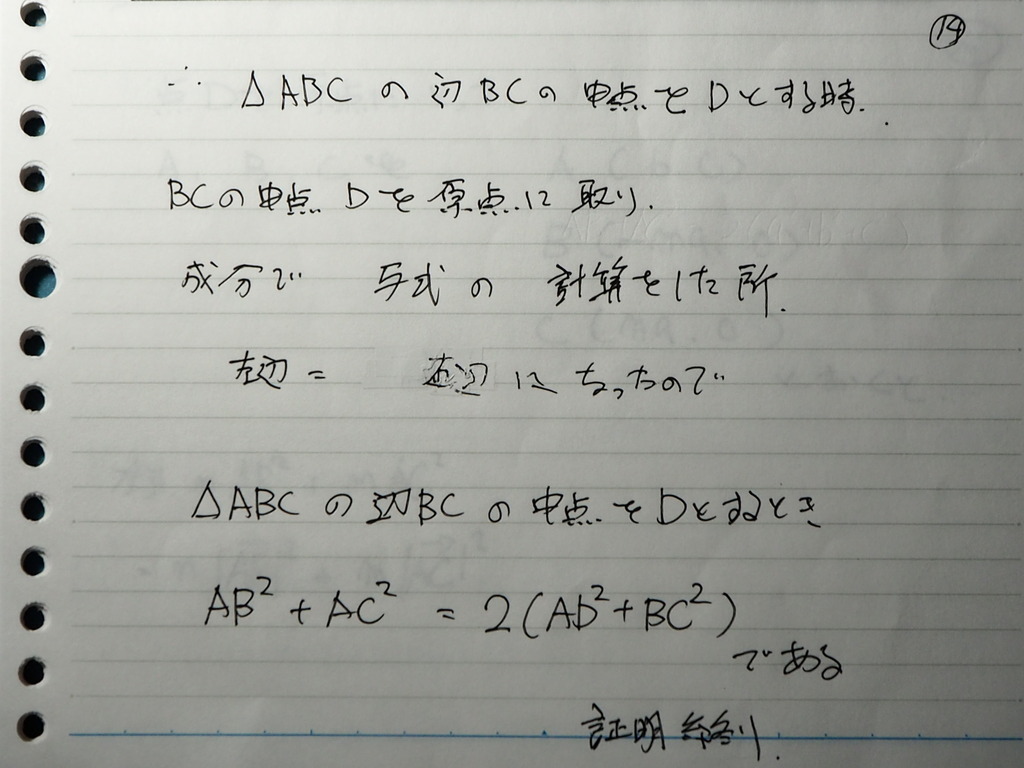 ⑭
∴ △ABCの辺BCの中点をDとする時.
BCの中点Dを原点に取り.
成分で 与式の 計算をした所.
左辺 = 右辺になったので
△ABCの辺BCの中点をDとするとき
AB² + AC² = 2(AD²+BC²)
である
証明終り.